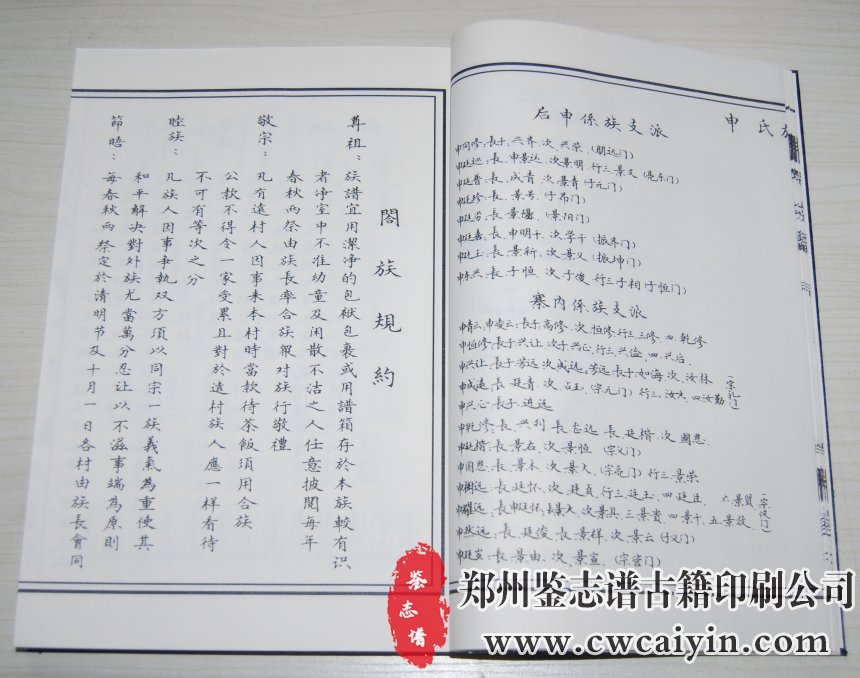 閤族規約
尊祖：族譜宜用潔净的包袱包裹或用譜箱存於本族較有识
者净室中不准幼童及闲散不洁之人任意披閱每年
春秋两祭由族長率合族眾对族行敬禮
敬宗：凡有遠村人因事来本村時當款待茶飯須用合族
公款不得令一家受累且對於遠村族人應一样看待
不可有等次之分
睦族：凡族人因事争執双方須以同宗一族義氣為重使其
和平解决對外族尤當萬分忍让以不滋事端為原則
節晤：每春秋两祭定於清明节及十月一日各村由族長會同
申氏
后申係族支派
申同修：長子、兴齐、次、兴荣、(朋远门)
申廷远：長、申景远、次、景明、行三、景文
申廷晋：長、成青、次、景青
申廷珍：長、景芳、
申廷芳：長、景陽、(景阳门)
申廷嘉：長、申明干、次、学干(振齐门)
申廷玉：長、景新、次、景义、(振坤门)
申东兴：長、子恒、次、子俊、行三子相(子恒门)
寨内係族支派
申青云、申凌云：長子、高修、次、恒修、行三、三修、四、乾修
申恒修：長子、兴让、次子、兴心、行三、兴盗、四、兴后、
申兴让、長子、芳远、次、成远、芳远、長子、如海、次、汝林
申成远、長、廷青、次、占玉、(宗元门)行三、汝六、四汝勤
申兴心：長子、进远
申乾修、長、兴利、長、志远、長、廷楷、次、國恩、
申廷楷、長、景右、次、景恒 (宗义门)
申因恩、長、景木、次、景大、(宗亮门)行三、景荣
長、廷怀、次、廷貞、行三、廷玉、四、廷臣、六、景賢
申然远、長、廷俊、長、景样、次、景云
申廷炭、長、景由、次、景宣、
鉴志谱
郑州鉴志谱古籍印刷公司
www.cwcaiyin.com